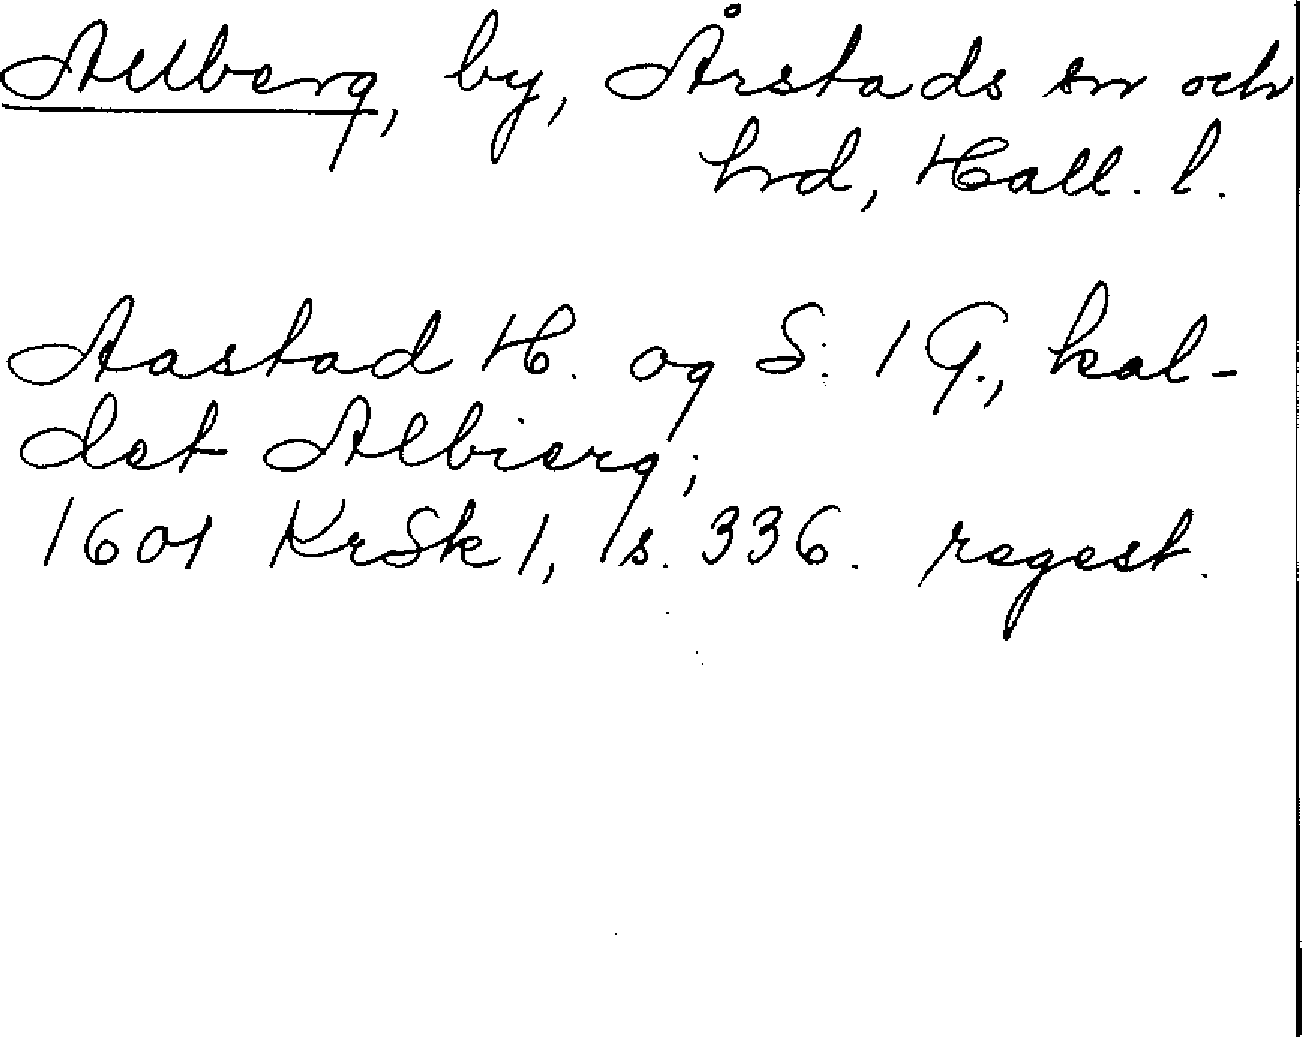 Allberg, by, Årstads sn och
hrd, Hall. l.
Aastad H. og S. 1 G., kal-
det Albierg;
1601 KrSk 1, s. 336. regest.